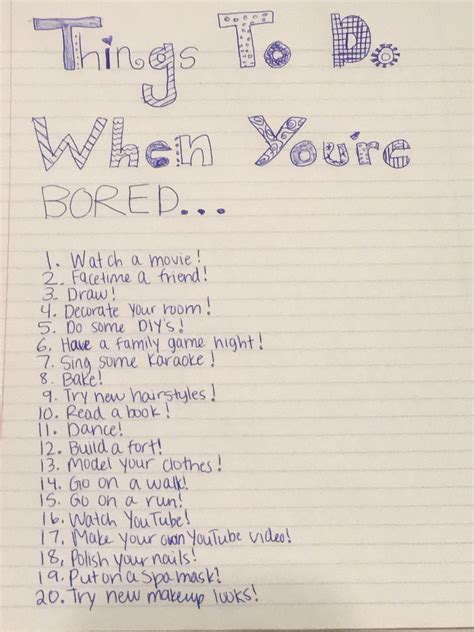 Things To Do
When You're
BORED...
1. Watch a movie!
2. Facetime a friend!
3. Draw!
4. Decorate your room!
5. Do some DIY's!
6. Have a family game night!
7. Sing some Karaoke!
8. Bake!
9. Try new hairstyles!
10. Read a book!
11. Dance!
12. Build a fort!
13. Model your clothes!
14. Go on a walk!
15. Go on a run!
16. Watch YouTube!
17. Make your own YouTube video!
18. Polish your nails!
19. Put on a Spa mask!
20. Try new makeup looks!